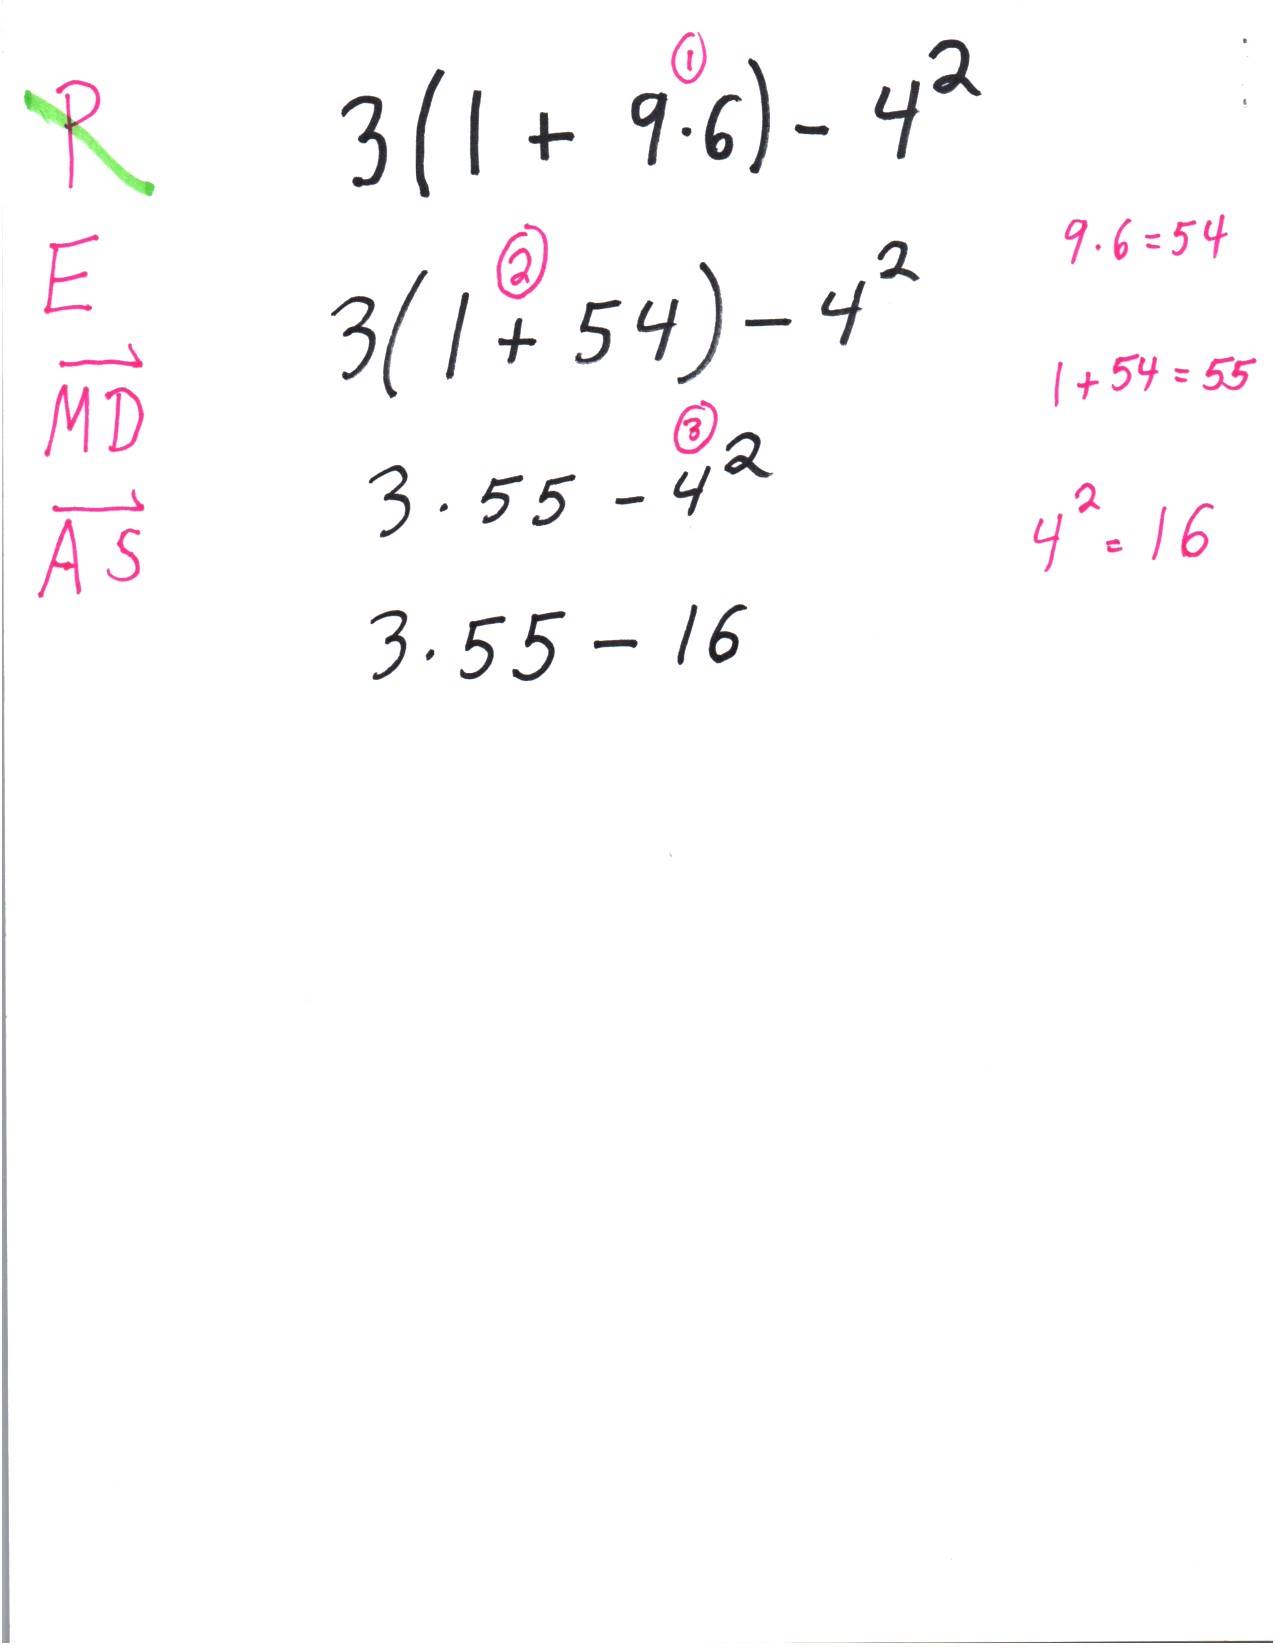 P
E
MD
AS
①
3(1 + 9·6) - 4²
②
3(1 + 54) - 4²
③
3·55 - 4²
3·55 - 16
9·6 = 54
1 + 54 = 55
4² = 16